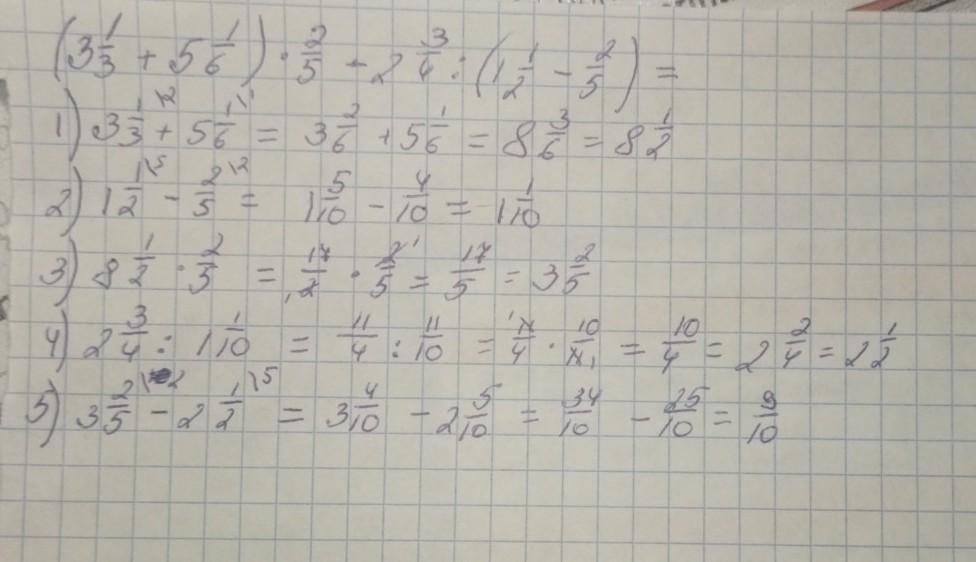 (3 1/3 + 5 1/6) · 2/5 - 2 3/4 : (1 1/2 - 2/5) =
1) 3 1/3 \2 + 5 1/6 \1 = 3 2/6 + 5 1/6 = 8 3/6 = 8 1/2
2) 1 1/2 \5 - 2/5 \2 = 1 5/10 - 4/10 = 1 1/10
3) 8 1/2 · 2/5 = 17/2 · 2/5 = 17/5 = 3 2/5
4) 2 3/4 : 1 1/10 = 11/4 : 11/10 = 11/4 · 10/11 = 10/4 = 2 2/4 = 2 1/2
5) 3 2/5 \2 - 2 1/2 \5 = 3 4/10 - 2 5/10 = 34/10 - 25/10 = 9/10